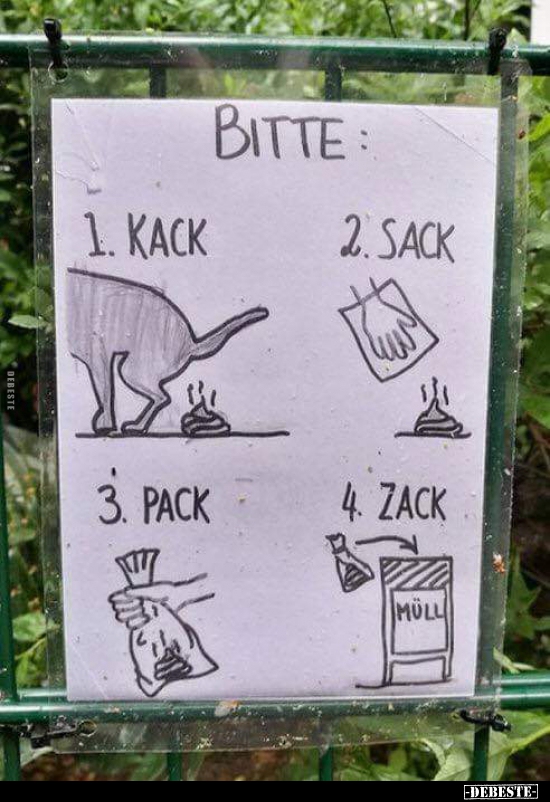 BITTE:
1. KACK
2. SACK
3. PACK
4. ZACK
MÜLL
© DEBESTE
-DEBESTE-